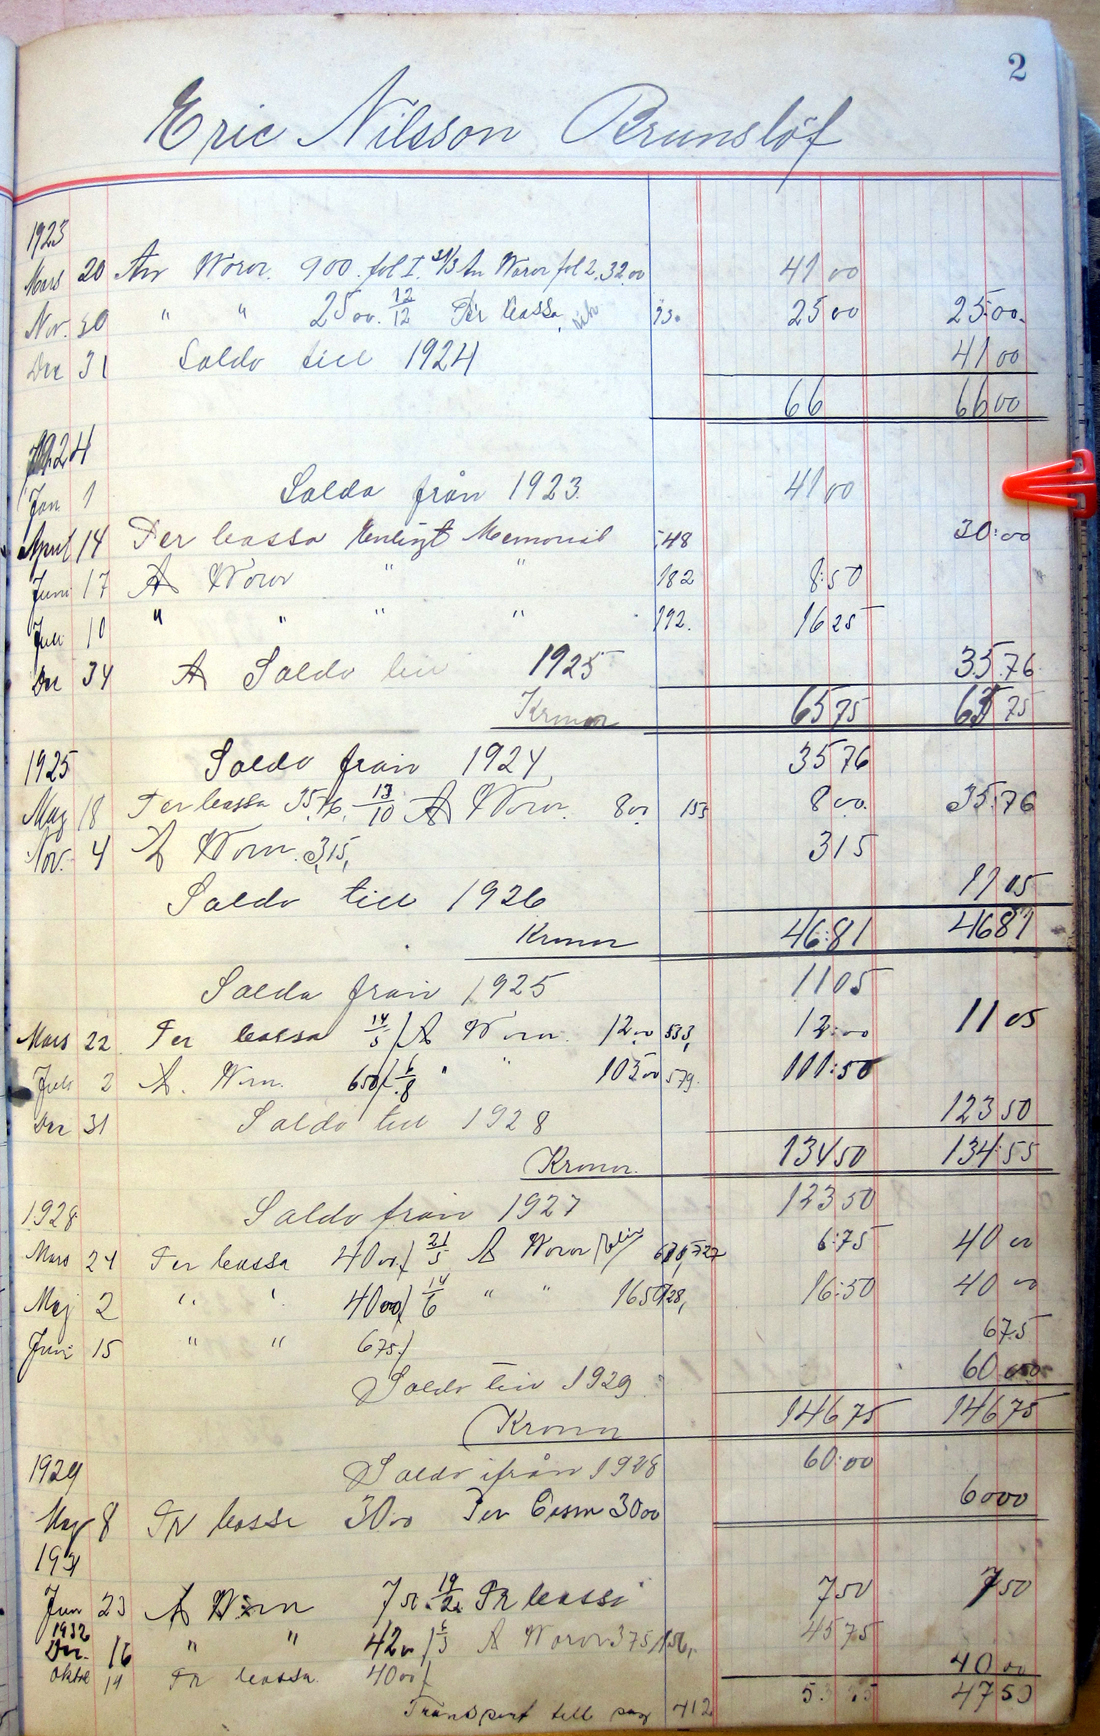 2
Eric Nilsson Brunslöf
1923
Mars 20 An Woror. 900. fol I. 31/3 An Woror fol 2, 32.00 41 00
Nov. 30 " " 25 00. 12/12 Per kassa 25 00 25.00.
Dec 31 Saldo till 1924 41 00
66 66 00
1924
Jan 1 Saldo från 1923. 41 00
April 14 Per kassa Enligt Memorial 148 30:00
Juni 17 A Woror " " 182 8:50
Juli 10 " " " " 192. 16 25
Dec 31 A Saldo till 1925 35.76
Kronor 65 75 65 75
1925 Saldo från 1924 35 76
Maj 18 Per kassa 35.76. 13/10 A Woror. 800 153 8 00. 35.76
Nov. 4 A Woror. 3,15, 3 15
Saldo till 1926 11 05
Kronor 46:81 46 81
Saldo från 1925 11 05
Mars 22 Per kassa 14/5 / A Woror. 12 00 533, 12:00 11 05
Juli 2 A. Woror. 650/ 6/8 " " 10500 579. 111:50
Dec 31 Saldo till 1928 123 50
Kronor. 134 50 134:55
1928 Saldo från 1927 123 50
Mars 24 Per kassa 40 00/ 21/5 A Woror 727 6:75 40 00
Maj 2 " " 40 00/ 14/6 " " 1650 728, 16:50 40 00
Juni 15 " " 675/ 6 75
Saldo till 1929 60 00
Kronor 146 75 146 75
1929 Saldo ifrån 1928 60:00
Maj 8 Pr kassa 30 00 Per 30 00 60 00
1931
Juni 23 A Woror 7 50. Pr kassa 7 50 7 50
1932
Dec. 16 " " 42 00 / A Woror 375 45 75
Oktbr 14 Pr kassa 40 00/ 40 00
Transport till pag 412 53 25 47 50